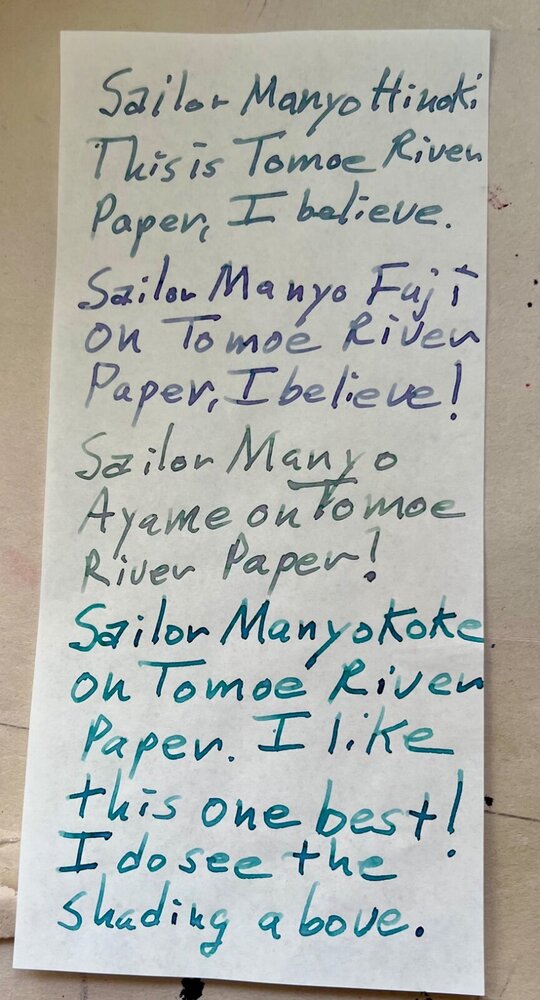 Sailor Manyo Hinoki
This is Tomoe River
Paper, I believe.
Sailor Manyo Fuji
on Tomoe River
Paper, I believe!
Sailor Manyo
Ayame on Tomoe
River Paper!
Sailor Manyo Koke
on Tomoe River
Paper. I like
this one best!
I do see the
shading above.